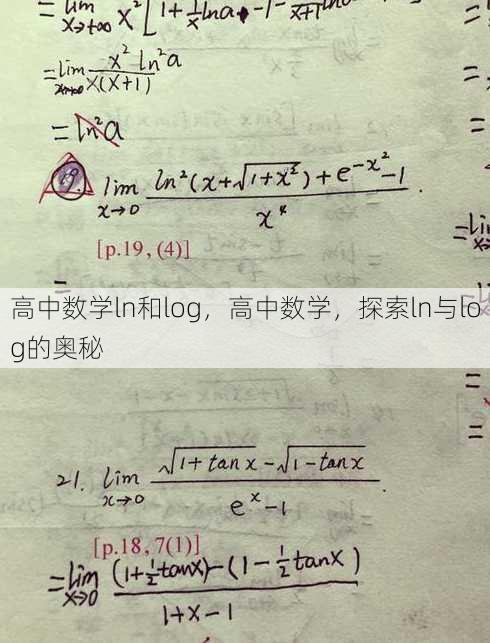 = lim x→+∞ x² [1 + 1/x lna · -1 -
= lim x→+∞ x² ln²a / x(x+1)
= ln²a
19. lim x→0 ln²(x+√1+x²) + e^-x² -1 / x⁴
[p.19, (4)]
=
高中数学ln和log，高中数学，探索ln与lo
g的奥秘
21. lim x→0 √1+tanx - √1-tanx / e^x -1
[p.18, 7(1)]
= lim x→0 (1+½tanx) - (1-½tanx) / 1+x-1